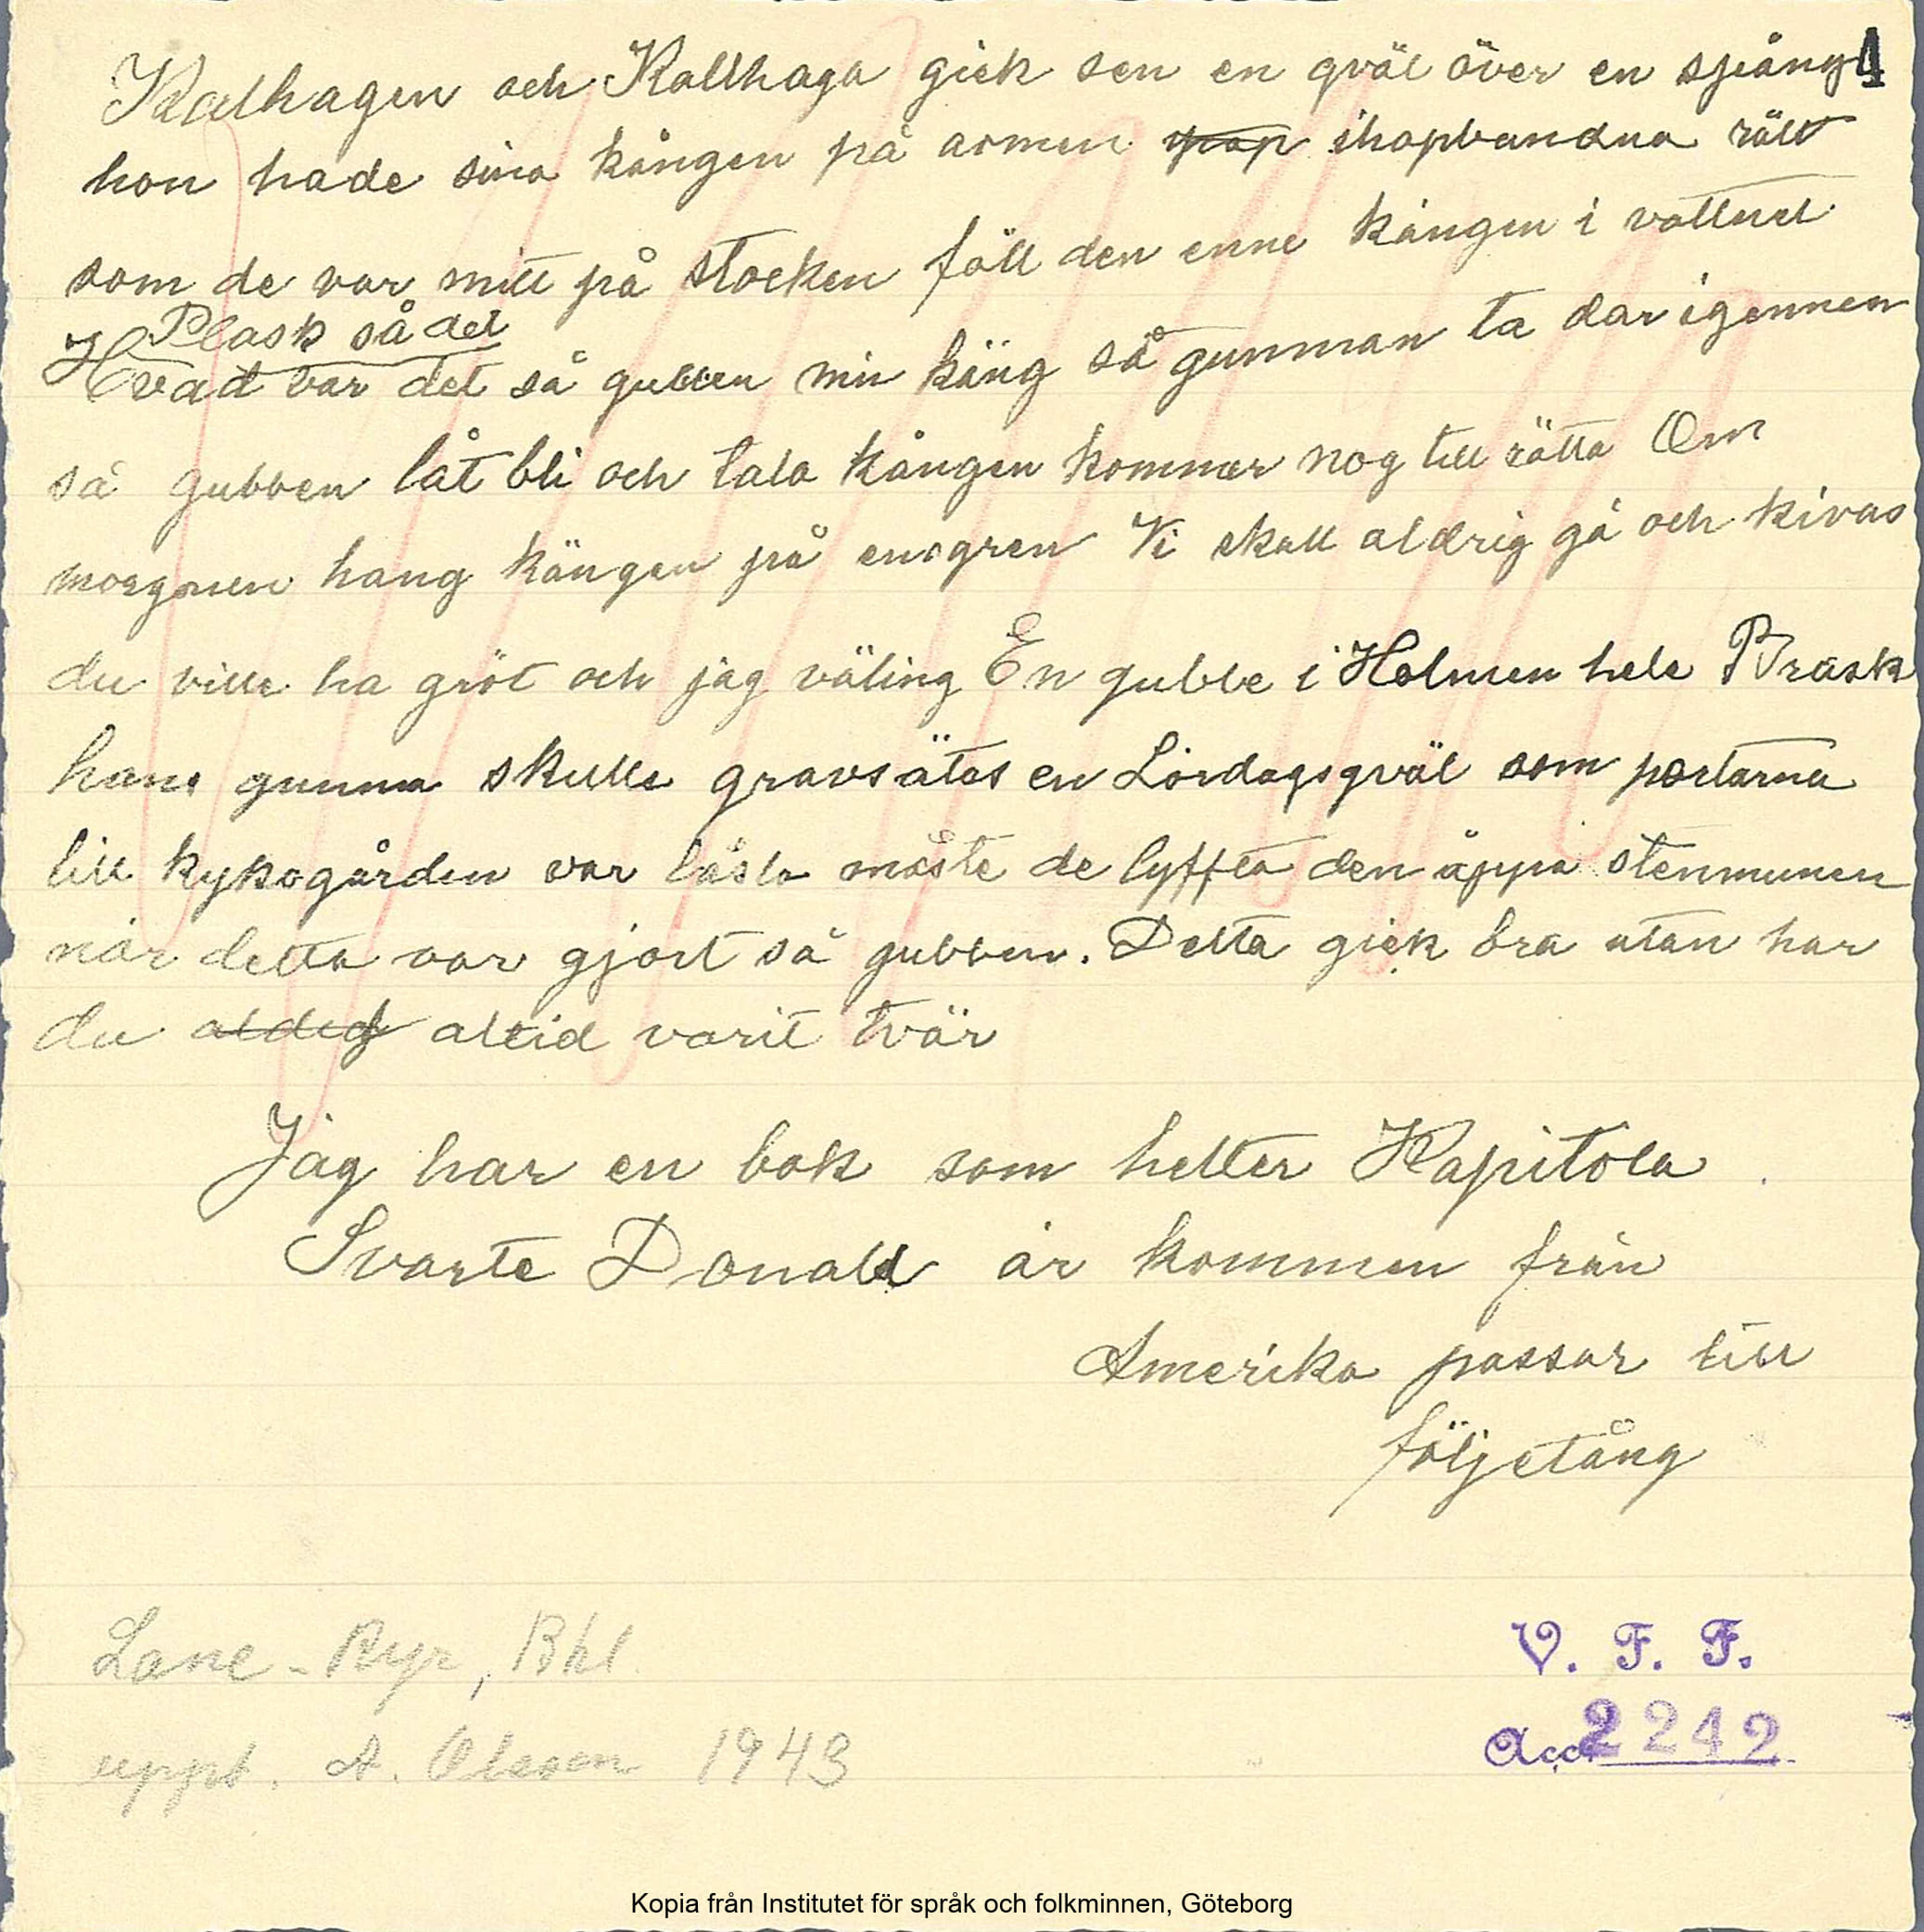 Kallhagen och Kallhaga gick sen en qväl över en spång 4
hon hade sina kängen på armen ihopbundna rätt
som de var mitt på stocken föll den enne kängen i vattnet
Plask så det
Hvad var det så gubben min käng så gumman ta dar igennen
så gubben låt bli och tala kängen kommer nog till rätta Om
morgonen hang kängen på en gren Vi skall aldrig gå och kivas
du ville ha gröt och jag väling En gubbe i Holmen hete Brask
hans gumma skulle gravsätas en Lördagsqväl som portarna
till kykogården var låsta måste de lyffta den åppå stenmuren
når detta var gjort så gubben. Detta gick bra utan har
du altid varit tvär
Jag har en bok som hetter Kapitola
Svarte Donald är kommen från
Amerika passar till
följetång
Lane-Ryr, Bhl.
uppt. A. Olsson 1943
V. F. F.
Acc. 2242
Kopia från Institutet för språk och folkminnen, Göteborg